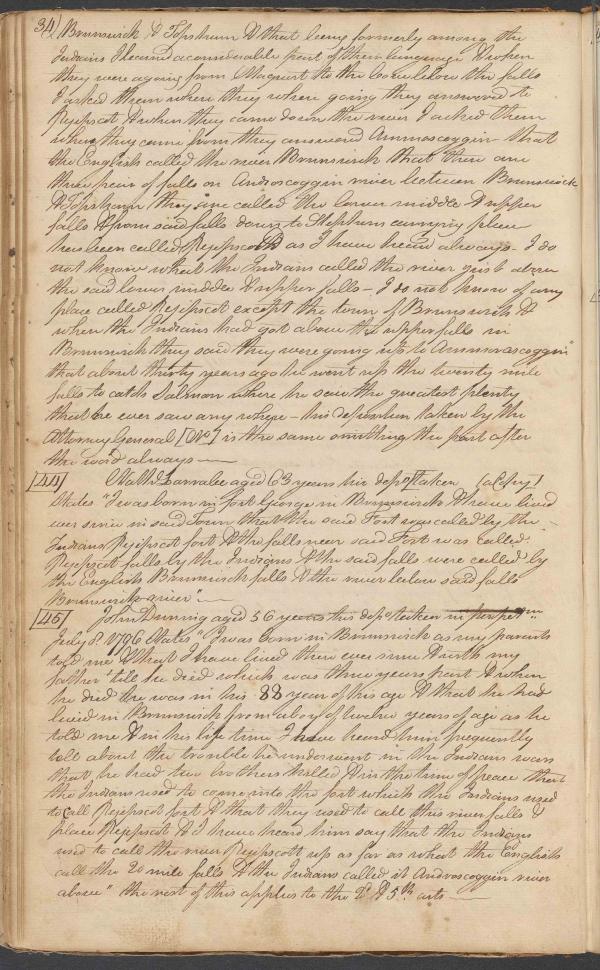 34)
Brunswick & Topsham & that being formerly among the
Indians I learned a considerable part of their language & when
they were agoing from Maquoit to the Cove below the falls
I asked them where they where going they answered to
Pejipscot & when they came down the river I asked them
where they came from they answerd Ammoscoggin that
the English called the river Brunswick that there are
three pair of falls on Androscoggin river between Brunswick
& Topsham they are called the lower middle & upper
falls & from said falls down to Stephens carrying place
has been called Pejipscot as I have heard always. I do
not know what the Indians called the river just above
the said lower middle & upper falls – I do not know of any
place called Pejipscot except the town of Brunswick &
when the Indians had got above the upper falls in
Brunswick they said they were going up to Ammorascoggin"
that about thirty years ago he went up the twenty mile
falls to catch Salmon where he saw the greatest plenty
that he ever saw any where – his deposition taken by the
Attorney General [No ] is the same omitting the part after
the word always —
[44] Nathl Larrabee aged 63 years his depon taken (a Copy)
States "I was born in fort George in Brunswick & have lived
ever since in said Town that the said Fort was called by the
Indians Pejipscot fort & the falls near said Fort was called
Pejipscot falls by the Indians & the said falls were called by
the English Brunswick falls & the river below said falls
Brunswick river" —
[45] John Dunning aged 56 years his depon taken in perpetm
July 1796 States "I was born in Brunswick as my parents
told me & that I have lived there ever since & with my
father till he died which was three years past & when
he died he was in his 88 year of his age & that he had
lived in Brunswick from a boy of twelve years of age as he
told me & in his life time I have heard him frequently
tell about the trouble he underwent in the Indians wars
that he had two brothers killed & in the time of peace that
the Indians used to come into the fort which the Indians used
to call Pejipscot fort & that they used to call this river falls &
place Pejipscot & I have heard him say that the Indians
used to call the river Pejipscott up as far as what the English
call the 20 mile falls & the Indians called it Androscoggin river
above" the rest of this applies to the 2d & 5th arts —